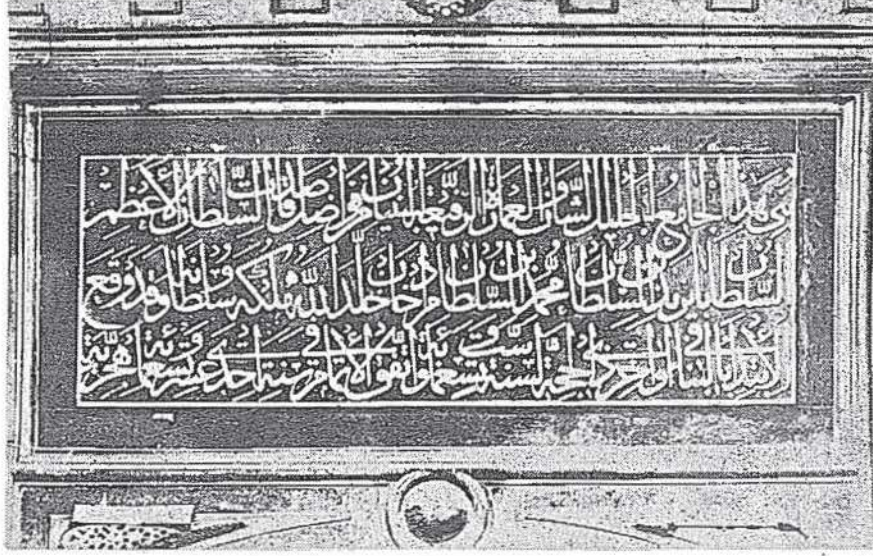 هذا الجامع الجليل الشان والعمارة الرفيعة صدقات السلطان الاعظم
السلطان بايزيد بن السلطان محمد بن السلطان مراد خان خلد الله ملكه وسلطانه وقد وقع
الابتداء بالبناء في اواخر ذي الحجة لسنة ست وتسعمائة واتفق الاتمام في سنة احدى عشرة وتسعمائة هجرية